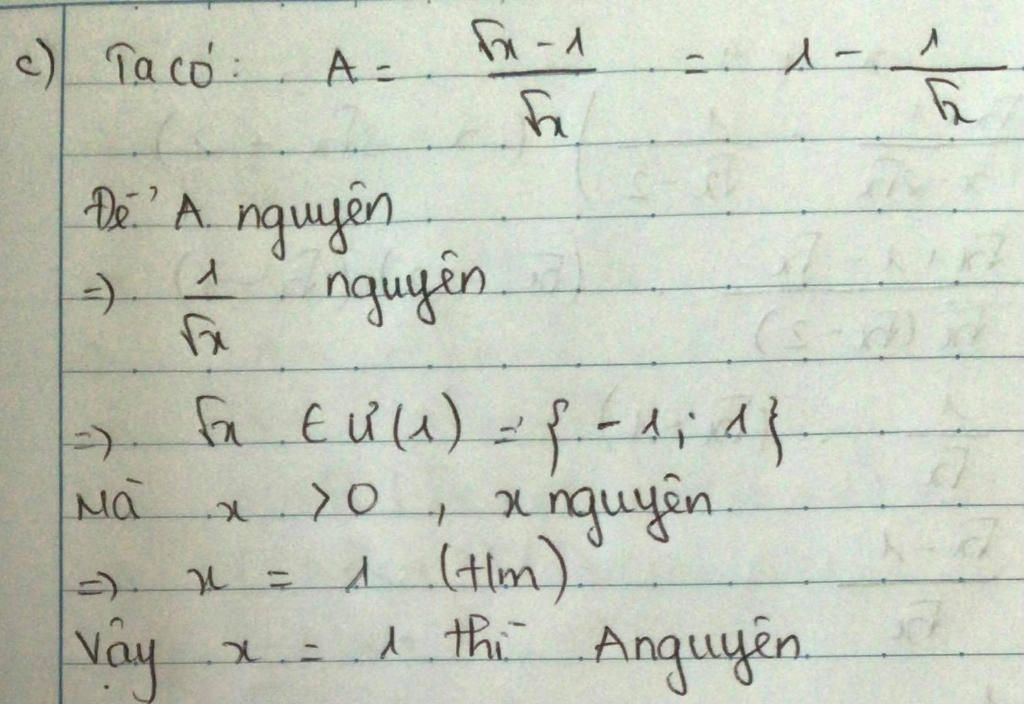 c) Ta có: A = (√x - 1)/√x = 1 - 1/√x
Để A nguyên
=> 1/√x nguyên
=> √x ∈ Ư(1) = {-1; 1}
Mà x > 0, x nguyên
=> x = 1 (t/m)
Vậy x = 1 thì A nguyên